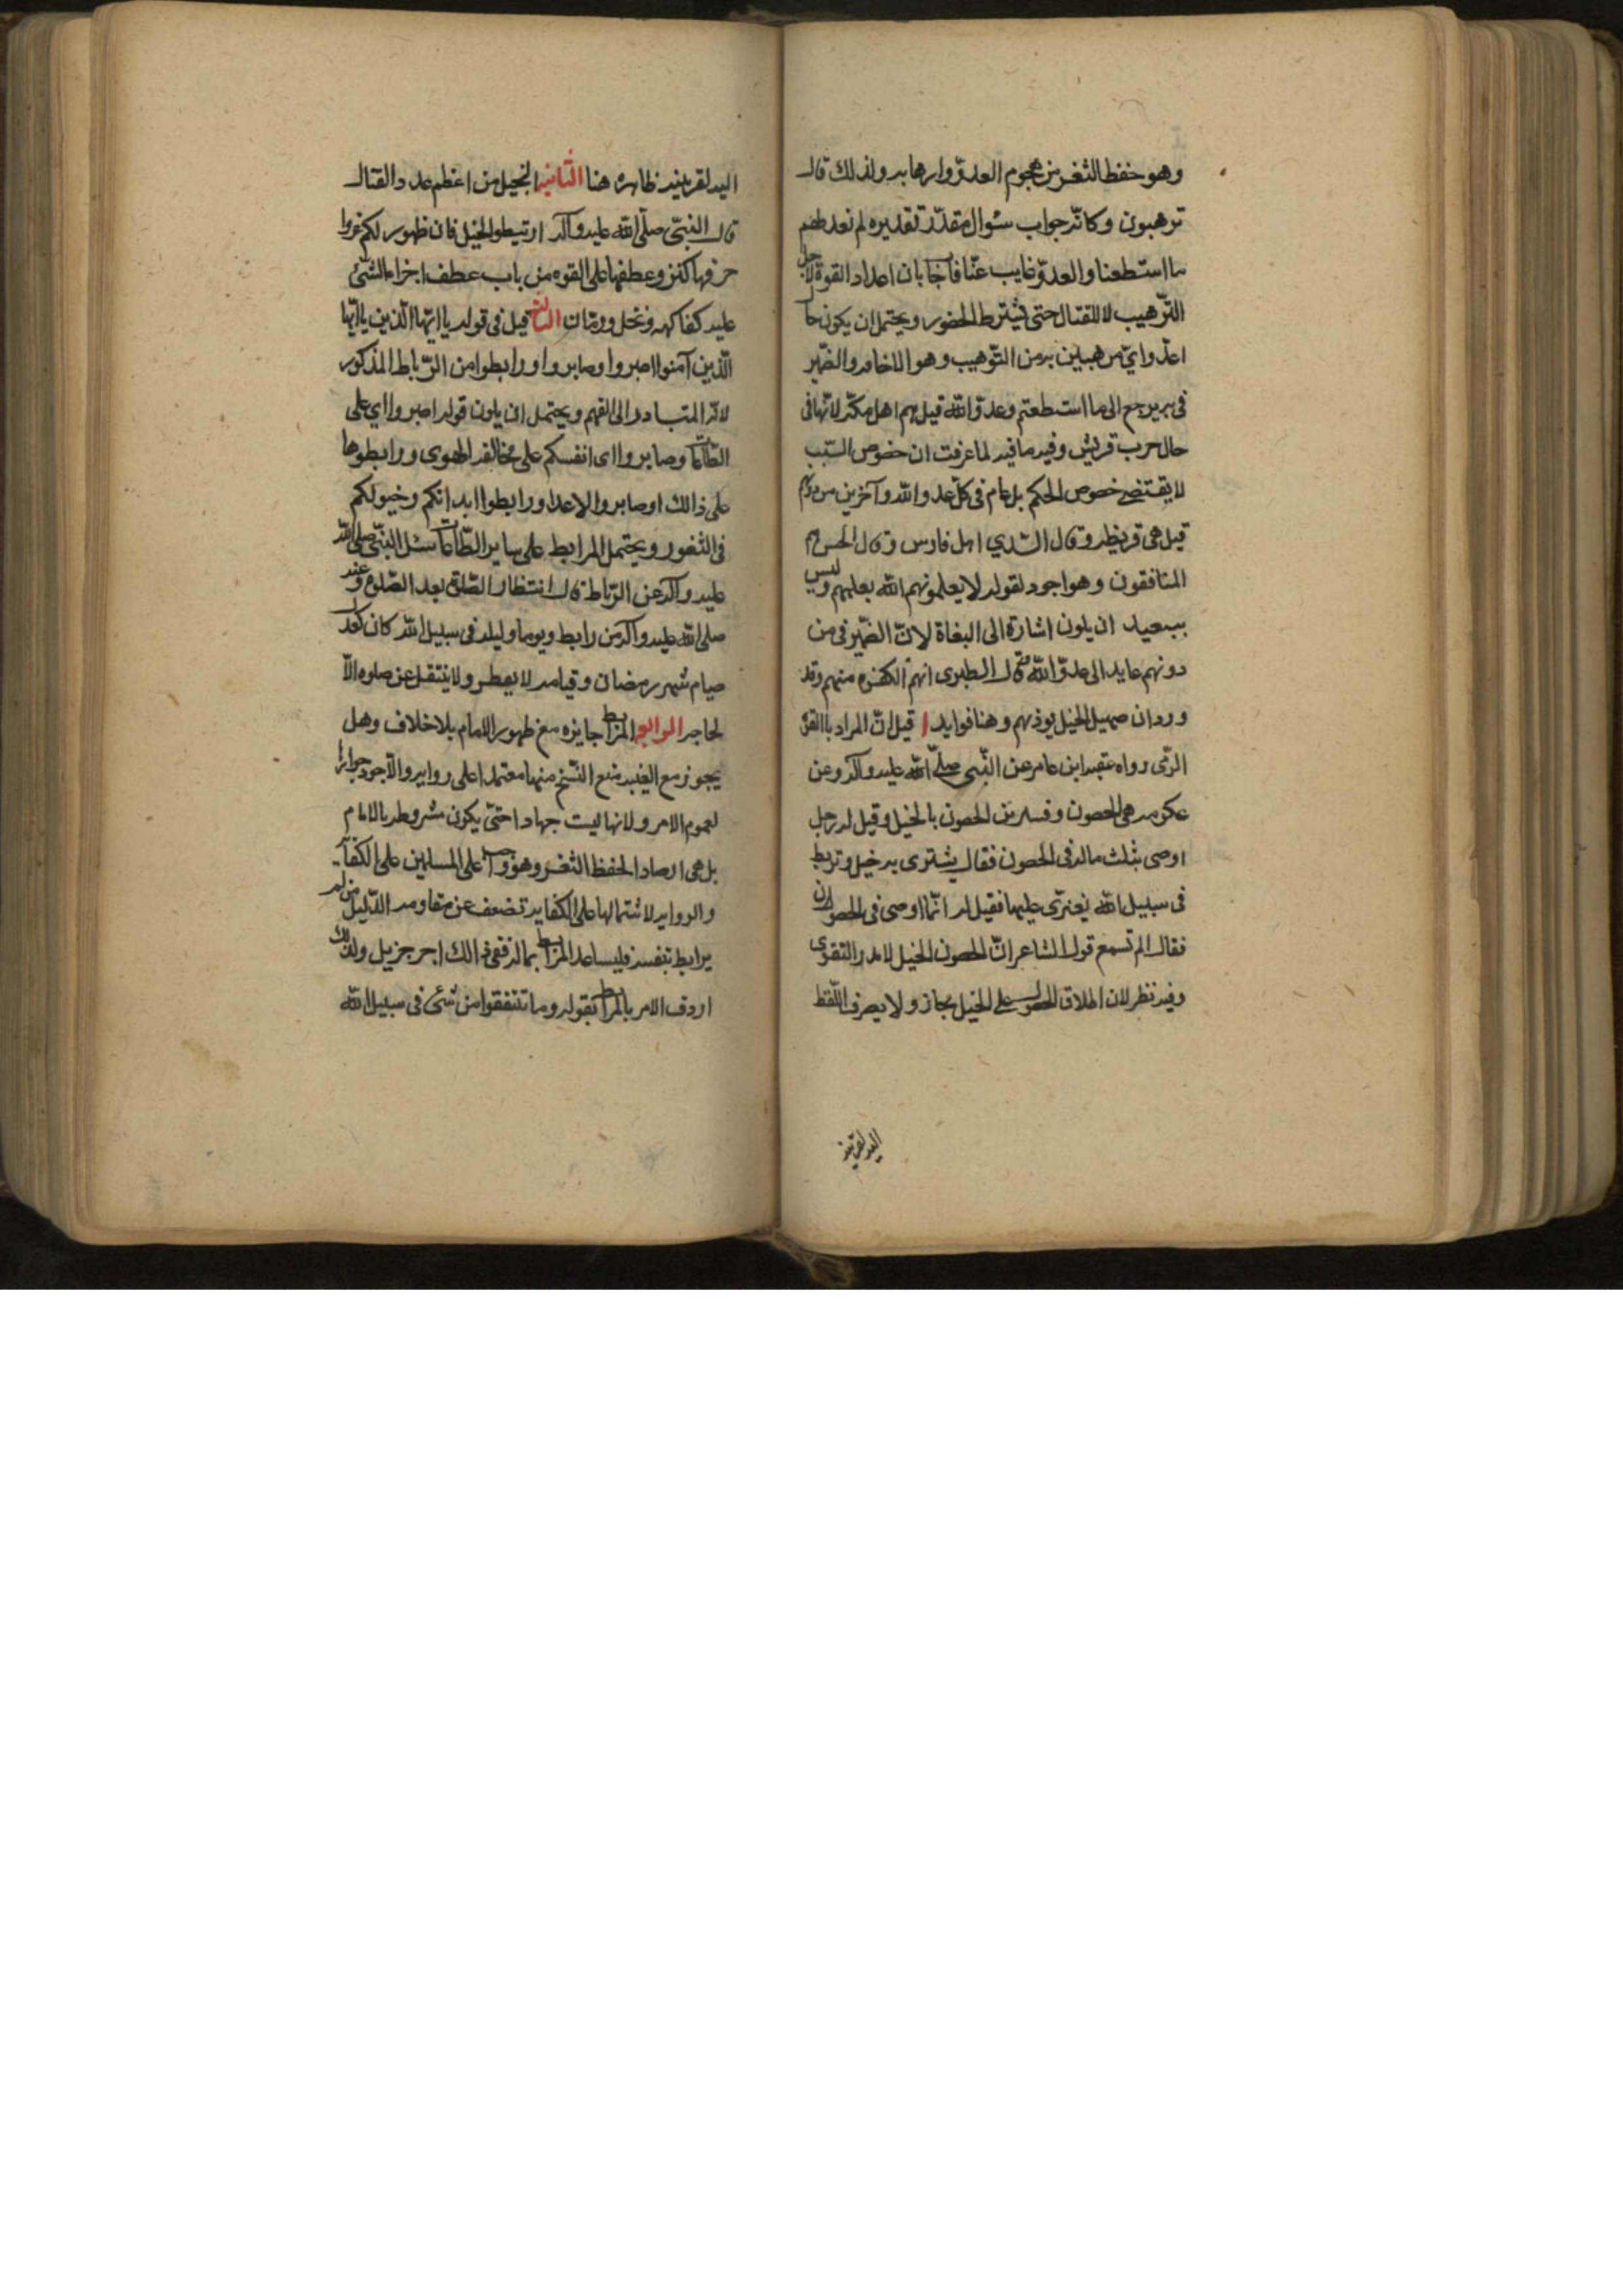 وهو حفظ الثغر من هجوم العدوّ وارهابه ولذلك قال
ترهبون وكانّه جواب سئوال مقدّر تقديره لم نعد لهم
ما استطعنا والعدوّ غايب عنّا فاجابان اعداد القوة لاجل
التّرهيب لا للقتال حتى يشترط الحضور ويحتمل ان يكون حا
اعدّوا اي مرهبين به من التّرهيب وهو الاخافه والضّمير
في به يرجع الى ما استطعتم وعدوّ الله قيل هم اهل مكّه لانّها في
حال حرب قريش وفيه ما فيه لما عرفت ان خصوص السّبب
لا يقتضي خصوص الحكم بل عام في كلّ عدو الله وآخرين من دونهم
قيل هي قريظه وقال السّدي اهل فارس وقال الحسن هم
المنافقون وهو اجود لقوله لا يعلمونهم الله يعلمهم وليس
ببعيد ان يكون اشارة الى البغاة لانّ الضّمير في من
دونهم عايد الى عدوّ الله قال الطبرى انهم الكفره منهم وقد
ورد ان صهيل الخيل يوذيهم وهنا فوايد ا قيل انّ المراد باالقوّه
الرّمى رواه عقبه ابن عامر عن النّبي صلّى الله عليه وآله وعن
عكرمه هي الحصون وفسّر من الحصون بالخيل وقيل له رجل
اوصى بثلث ماله في الحصون فقال يشترى به خيل وتربط
في سبيل الله يغزى عليها فقيل له انّما اوصى في الحصون
فقال الم تسمع قول الشاعر انّ الحصون الخيل لا مدر القرى
وفيه نظر لان اطلاق الحصون على الخيل مجاز ولا يصرف اللّفظ
اليه لقرينة
اليه لقرينه ظاهره هنا الثانيه الخيل من اعظم عدد القتال
قال النبيّ صلّى الله عليه وآله ارتبطوا الخيل فان ظهورها لكم عزوا
حرفها كنز وعطفها على القوه من باب عطف اجزاء الشّئ
عليه كفاكهه ونخل ورمّان الثالثه قيل في قوله يا ايّها الّذين يا ايّها
الّذين آمنوا اصبروا وصابروا ورابطوا من الرّباط المذكور
لانّه المتبادر الى الفهم ويحتمل ان يكون قوله اصبروا اى على
الطّاعات وصابروا اى انفسكم على مخالفه الهوى ورابطوها
على ذالك او صابروا الاعداء ورابطوا ابدانكم وخيولكم
في الثغور ويحتمل المرابط على ساير الطّاعات سئل النبيّ صلى الله
عليه وآله عن الرّباط قال انتظار الصّلوة بعد الصّلوة وعنه
صلى الله عليه وآله من رابط ويوما وليله في سبيل الله كان كعدل
صيام شهر رمضان وقيامه لا يفطر ولا ينتقل عن صلوه الّا
لحاجه الرابعه المرابط جايزه مع ظهور الامام بلا خلاف وهل
يجوز مع الغيبه منع الشّيخ منها معتمدا على روايه والاجود جوازها
لعموم الامر ولانها ليست جهادا حتّى يكون مشروطه بالامام
بل هي ارصاد الحفظ الثغر وهو واجب على المسلمين على الكفايه
والروايه لاشتمالها على الكفايه تضعف عن مقاومه الدّليل من لم
يرابط بنفسه فليساعد المرابط بماله ففي ذالك اجر جزيل ولذالك
اردف الامر بالمرابط بقوله وما تنفقوا من شئ في سبيل الله